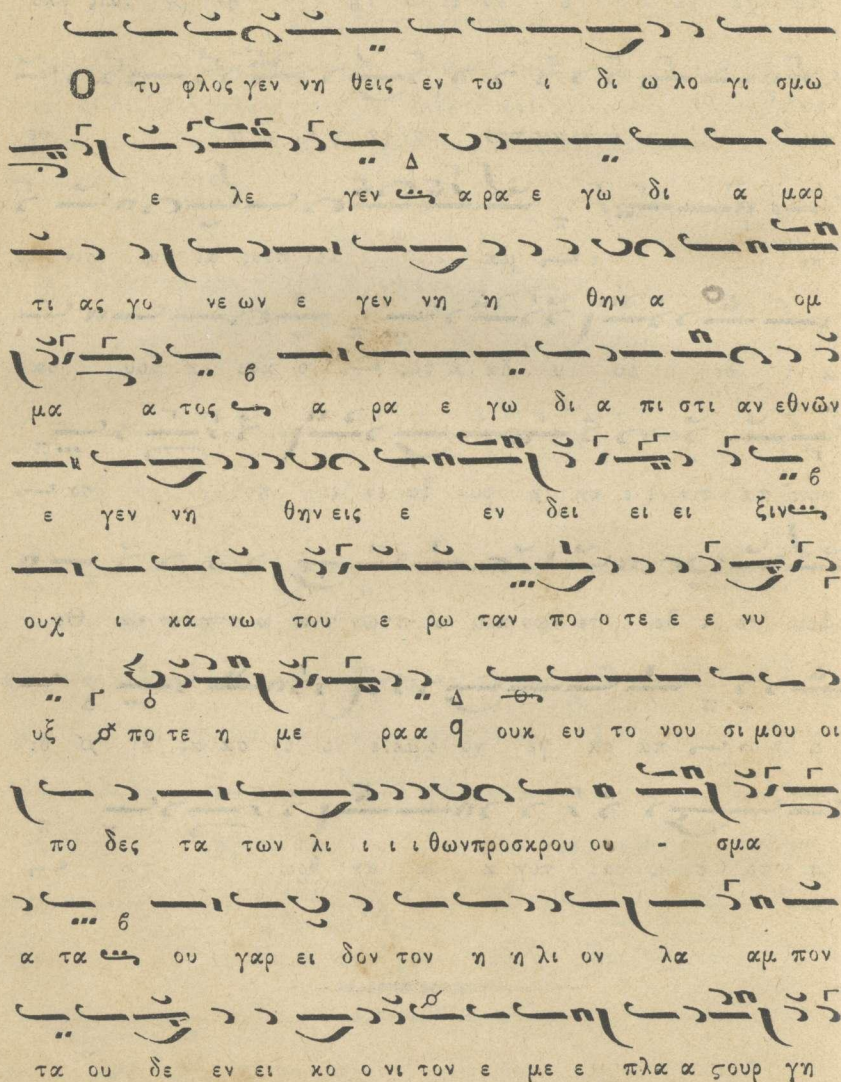 Ο τυ φλος γεν νη θεις εν τω ι δι ω λο γι σμω
ε λε γεν α ρα ε γω δι α μαρ
τι ας γο νε ων ε γεν νη η θην α ομ
μα α τος α ρα ε γω δι α πι στι αν εθνῶν
ε γεν νη θην εις ε εν δει ει ει ξιν
ουχ ι κα νω του ε ρω ταν πο ο τε ε ε νυ
υξ πο τε η με ρα α ουκ ευ το νου σι μου οι
πο δες τα των λι ι ι ι θων προσκρου ου - σμα
α τα ου γαρ ει δον τον η η λι ον λα αμ πον
τα ου δε εν ει κο ο νι τον ε με ε πλα α ϛουρ γη